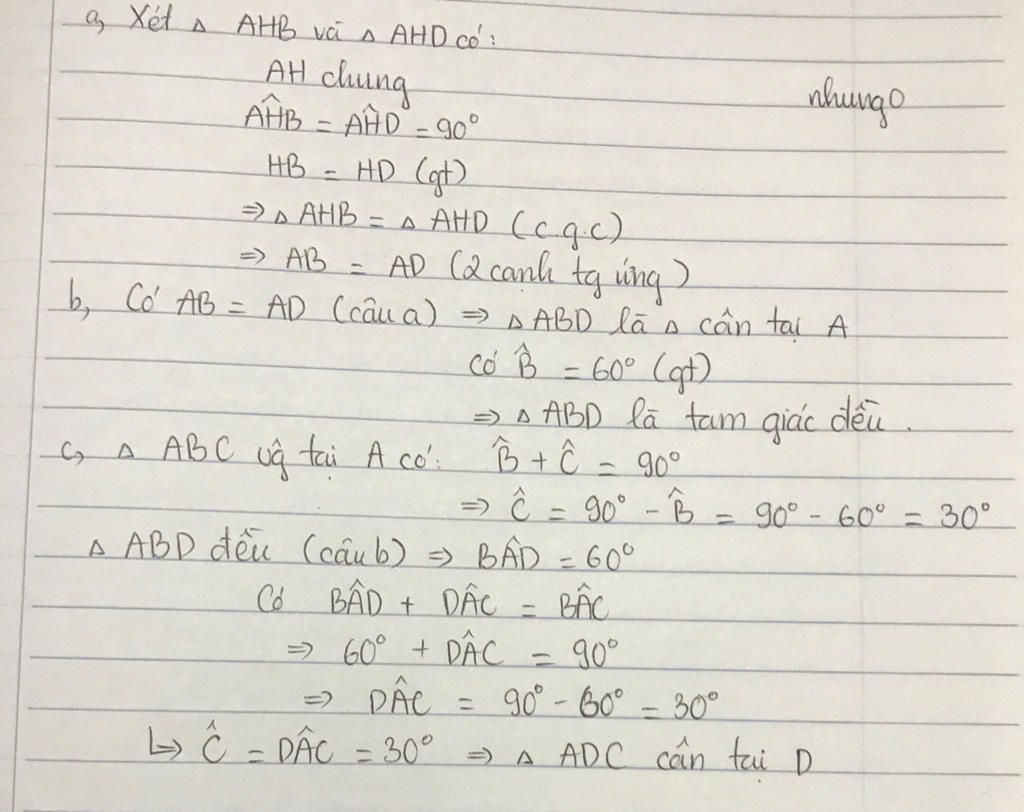 a, Xét △ AHB và △ AHD có:
AH chung
nhung0
AĤB = AĤD = 90°
HB = HD (gt)
⇒ △ AHB = △ AHD (c.g.c)
⇒ AB = AD (2 cạnh tg ứng)
b, Có AB = AD (câu a) ⇒ △ ABD là △ cân tại A
Có B̂ = 60° (gt)
⇒ △ ABD là tam giác đều.
c, △ ABC vg tại A có: B̂ + Ĉ = 90°
⇒ Ĉ = 90° - B̂ = 90° - 60° = 30°
△ ABD đều (câu b) ⇒ BÂD = 60°
Có BÂD + DÂC = BÂC
⇒ 60° + DÂC = 90°
⇒ DÂC = 90° - 60° = 30°
↳ Ĉ = DÂC = 30° ⇒ △ ADC cân tại D